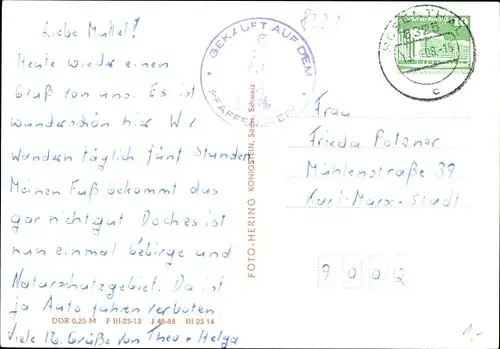 Liebe Muttel!
Heute wieder einen
Gruß von uns. Es ist
wunderschön hier Wir
wandern täglich fünf Stunden
Meinen Fuß bekommt das
gar nicht gut Doch es ist
nun einmal Gebirge und
Naturschutzgebiet. Da ist
ja Auto fahren verboten
Viele lb. Grüße von Theo + Helga
DDR 0,25 M F III-23-13 J 48-88 III 25 14
FOTO-HERING KÖNIGSTEIN, Sächs. Schweiz
GEKAUFT AUF DEM
PFAFFENSTEIN
10
8325
c
Frau
Frieda Patzner
Mühlenstraße 39
Karl-Marx-Stadt
9002
1,-